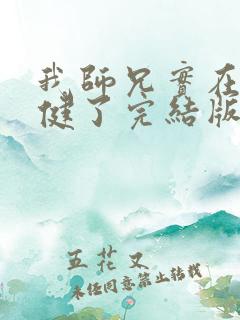 我師兄實在
健了完結版
五花又
未經同意禁止轉載